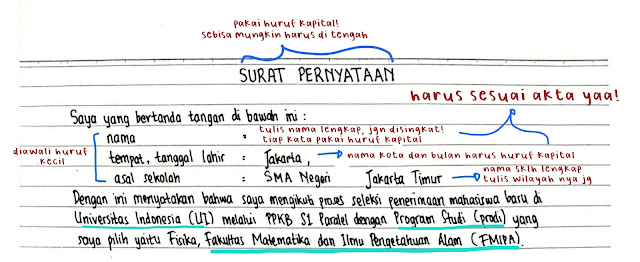 pakai huruf kapital!
sebisa mungkin harus di tengah
SURAT PERNYATAAN
harus sesuai akta yaa!
Saya yang bertanda tangan di bawah ini :
diawali huruf kecil
nama : tulis nama lengkap, jgn disingkat!
tiap kata pakai huruf kapital
tempat, tanggal lahir : Jakarta, nama kota dan bulan harus huruf kapital
asal sekolah : SMA Negeri Jakarta Timur nama sklh lengkap
tulis wilayah nya jg
Dengan ini menyatakan bahwa saya mengikuti proses seleksi penerimaan mahasiswa baru di
Universitas Indonesia (UI) melalui PPKB S1 Paralel dengan Program Studi (prodi) yang
saya pilih yaitu Fisika, Fakultas Matematika dan Ilmu Pengetahuan Alam (FMIPA).